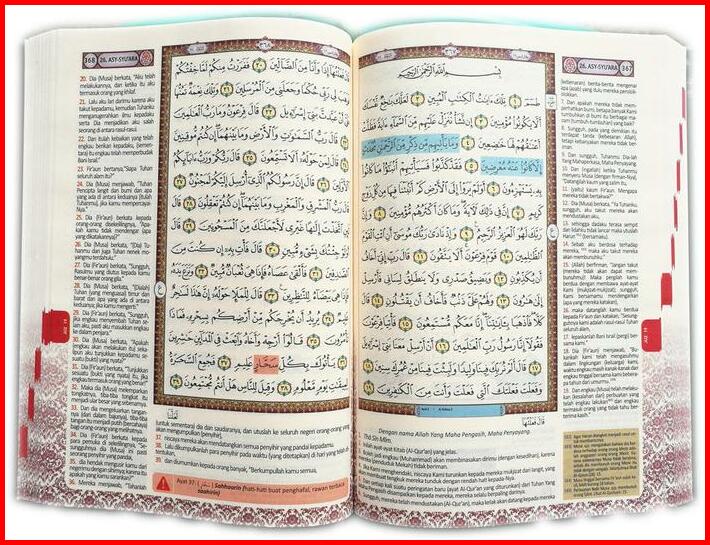 26. ASY-SYU'ARA 367
(kebenaran) berita-berita mengenai
apa (azab) yang dulu mereka perolok-
olokkan.
7. Dan apakah mereka tidak mem-
perhatikan bumi, betapa banyak Kami
tumbuhkan di bumi itu berbagai ma-
cam (tumbuh-tumbuhan) yang baik?
8. Sungguh, pada yang demikian itu
terdapat tanda (kebesaran Allah),
tetapi kebanyakan mereka tidak ber-
iman.
9. Dan sungguh, Tuhanmu Dia-lah
Yang Mahaperkasa, Maha Penyayang.
10. Dan (ingatlah) ketika Tuhanmu
menyeru Musa (dengan firman-Nya),
"Datangilah kaum yang zalim itu,
11. (yaitu) kaum Fir'aun. Mengapa
mereka tidak bertakwa?"
12. Dia (Musa) berkata, "Ya Tuhanku,
sungguh, aku takut mereka akan
mendustakan aku,
13. sehingga dadaku terasa sempit
dan lidahku tidak lancar maka utuslah
Harun (bersamaku).
14. Sebab aku berdosa terhadap
mereka, maka aku takut mereka akan
membunuhku."
15. (Allah) berfirman, "Jangan takut
(mereka tidak akan dapat mem-
bunuhmu)! Maka pergilah kamu
berdua dengan membawa ayat-ayat
Kami (mukjizat-mukjizat); sungguh,
Kami bersamamu mendengarkan
(apa yang mereka katakan),
16. maka datanglah kamu berdua
kepada Fir'aun dan katakan, "Sesung-
guhnya kami adalah rasul-rasul Tuhan
seluruh alam,
17. lepaskanlah Bani Israil (pergi) ber-
sama kami."
18. Dia (Fir'aun) menjawab, "Bu-
kankah kami telah mengasuhmu
dalam lingkungan (keluarga) kami,
waktu engkau masih kanak-kanak dan
engkau tinggal bersama kami bebera-
pa tahun dari umurmu.
19. Dan engkau (Musa) telah melaku-
kan (kesalahan dari) perbuatan yang
telah engkau lakukan dan engkau
termasuk orang yang tidak tahu ber-
terima kasih."
JUZ 19
بِسْمِ اللَّهِ الرَّحْمَٰنِ الرَّحِيمِ
طسم ١ تِلْكَ آيَاتُ الْكِتَابِ الْمُبِينِ ٢ لَعَلَّكَ بَاخِعٌ نَفْسَكَ
أَلَّا يَكُونُوا مُؤْمِنِينَ ٣ إِنْ نَشَأْ نُنَزِّلْ عَلَيْهِمْ مِنَ السَّمَاءِ آيَةً فَظَلَّتْ
أَعْنَاقُهُمْ لَهَا خَاضِعِينَ ٤ وَمَا يَأْتِيهِمْ مِنْ ذِكْرٍ مِنَ الرَّحْمَٰنِ مُحْدَثٍ
إِلَّا كَانُوا عَنْهُ مُعْرِضِينَ ٥ فَقَدْ كَذَّبُوا فَسَيَأْتِيهِمْ أَنْبَاءُ مَا كَانُوا
بِهِ يَسْتَهْزِئُونَ ٦ أَوَلَمْ يَرَوْا إِلَى الْأَرْضِ كَمْ أَنْبَتْنَا فِيهَا مِنْ كُلِّ زَوْجٍ
كَرِيمٍ ٧ إِنَّ فِي ذَٰلِكَ لَآيَةً وَمَا كَانَ أَكْثَرُهُمْ مُؤْمِنِينَ ٨ وَإِنَّ
رَبَّكَ لَهُوَ الْعَزِيزُ الرَّحِيمُ ٩ وَإِذْ نَادَىٰ رَبُّكَ مُوسَىٰ أَنِ ائْتِ الْقَوْمَ
الظَّالِمِينَ ١٠ قَوْمَ فِرْعَوْنَ أَلَا يَتَّقُونَ ١١ قَالَ رَبِّ إِنِّي أَخَافُ
أَنْ يُكَذِّبُونِ ١٢ وَيَضِيقُ صَدْرِي وَلَا يَنْطَلِقُ لِسَانِي فَأَرْسِلْ
إِلَىٰ هَارُونَ ١٣ وَلَهُمْ عَلَيَّ ذَنْبٌ فَأَخَافُ أَنْ يَقْتُلُونِ ١٤ قَالَ
كَلَّا فَاذْهَبَا بِآيَاتِنَا إِنَّا مَعَكُمْ مُسْتَمِعُونَ ١٥ فَأْتِيَا فِرْعَوْنَ
فَقُولَا إِنَّا رَسُولُ رَبِّ الْعَالَمِينَ ١٦ أَنْ أَرْسِلْ مَعَنَا بَنِي إِسْرَائِيلَ
١٧ قَالَ أَلَمْ نُرَبِّكَ فِينَا وَلِيدًا وَلَبِثْتَ فِينَا مِنْ عُمُرِكَ سِنِينَ ١٨
وَفَعَلْتَ فَعْلَتَكَ الَّتِي فَعَلْتَ وَأَنْتَ مِنَ الْكَافِرِينَ ١٩
قَالَ فَعَلْتُهَا
Dengan nama Allah Yang Maha Pengasih, Maha Penyayang.
1. Tha Sin Mim.
2. Inilah ayat-ayat Kitab (Al-Qur'an) yang jelas.
3. Boleh jadi engkau (Muhammad) akan membinasakan dirimu (dengan kesedihan), karena
mereka (penduduk Mekah) tidak beriman.
4. Jika Kami menghendaki, niscaya Kami turunkan kepada mereka mukjizat dari langit, yang
membuat tengkuk mereka tunduk dengan rendah hati kepada-Nya.
5. Dan setiap kali disampaikan kepada mereka, mereka selalu berpaling darinya.
6. Sungguh, mereka telah mendustakan (Al-Qur'an), maka kelak akan datang kepada mereka
368 26. ASY-SYU'ARA
20. Dia (Musa) berkata, "Aku telah
melakukannya, dan ketika itu aku
termasuk orang yang khilaf.
21. Lalu aku lari darimu karena aku
takut kepadamu, kemudian Tuhanku
menganugerahkan ilmu kepadaku
serta Dia menjadikan aku salah
seorang di antara rasul-rasul.
22. Dan itulah kebaikan yang telah
engkau berikan kepadaku, (semen-
tara) itu engkau telah memperbudak
Bani Israil."
23. Fir'aun bertanya,"Siapa Tuhan
seluruh alam itu?"
24. Dia (Musa) menjawab, "Tuhan
Pencipta langit dan bumi dan apa
yang ada di antara keduanya (itulah
Tuhanmu), jika kamu mempercayai-
Nya."
25. Dia (Fir'aun) berkata kepada
orang-orang di sekelilingnya, "Apa-
kah kamu tidak mendengar (apa
yang dikatakannya)?"
26. Dia (Musa) berkata, "(Dia) Tu-
hanmu dan juga Tuhan nenek mo-
yangmu terdahulu."
27. Dia (Fir'aun) berkata, "Sungguh,
Rasulmu yang diutus kepada kamu
benar-benar orang gila."
28. Dia (Musa) berkata, "(Dialah)
Tuhan (yang menguasai) timur dan
barat dan apa yang ada di antara
keduanya; jika kamu mengerti."
29. Dia (Fir'aun) berkata, "Sungguh,
jika engkau menyembah Tuhan se-
lain aku, pasti aku masukkan engkau
ke dalam penjara."
30. Dia (Musa) berkata, "Apakah
(engkau akan melakukan itu) seka-
lipun aku tunjukkan kepadamu se-
suatu (bukti) yang nyata?"
31. Dia (Fir'aun) berkata, "Tunjukkan
sesuatu (bukti yang nyata) itu, jika
engkau termasuk orang yang benar!"
32. Maka dia (Musa) melemparkan
tongkatnya, tiba-tiba tongkat itu
menjadi ular besar yang sebenarnya.
33. Dan dia mengeluarkan tangan-
nya (dari dalam bajunya), tiba-tiba
tangan itu menjadi putih (bercahaya)
bagi orang-orang yang melihatnya.
34. Dia (Fir'aun) berkata kepada
para pemuka di sekelilingnya, "Se-
sungguhnya dia (Musa) ini pasti
seorang penyihir yang pandai,
35. dia hendak mengusir kamu dari
negerimu dengan sihirnya; karena itu
apakah yang kamu sarankan?"
36. Mereka menjawab, "Tahanlah
JUZ 19
قَالَ فَعَلْتُهَا إِذًا وَأَنَا مِنَ الضَّالِّينَ ٢٠ فَفَرَرْتُ مِنْكُمْ لَمَّا خِفْتُكُمْ
فَوَهَبَ لِي رَبِّي حُكْمًا وَجَعَلَنِي مِنَ الْمُرْسَلِينَ ٢١ وَتِلْكَ نِعْمَةٌ تَمُنُّهَا
عَلَيَّ أَنْ عَبَّدْتَ بَنِي إِسْرَائِيلَ ٢٢ قَالَ فِرْعَوْنُ وَمَا رَبُّ الْعَالَمِينَ
٢٣ قَالَ رَبُّ السَّمَاوَاتِ وَالْأَرْضِ وَمَا بَيْنَهُمَا إِنْ كُنْتُمْ مُوقِنِينَ
٢٤ قَالَ لِمَنْ حَوْلَهُ أَلَا تَسْتَمِعُونَ ٢٥ قَالَ رَبُّكُمْ وَرَبُّ آبَائِكُمُ الْأَوَّلِينَ
٢٦ قَالَ إِنَّ رَسُولَكُمُ الَّذِي أُرْسِلَ إِلَيْكُمْ لَمَجْنُونٌ ٢٧
قَالَ رَبُّ الْمَشْرِقِ وَالْمَغْرِبِ وَمَا بَيْنَهُمَا إِنْ كُنْتُمْ تَعْقِلُونَ ٢٨
قَالَ لَئِنِ اتَّخَذْتَ إِلَٰهًا غَيْرِي لَأَجْعَلَنَّكَ مِنَ الْمَسْجُونِينَ ٢٩
قَالَ أَوَلَوْ جِئْتُكَ بِشَيْءٍ مُبِينٍ ٣٠ قَالَ فَأْتِ بِهِ إِنْ كُنْتَ مِنَ
الصَّادِقِينَ ٣١ فَأَلْقَىٰ عَصَاهُ فَإِذَا هِيَ ثُعْبَانٌ مُبِينٌ ٣٢ وَنَزَعَ يَدَهُ
فَإِذَا هِيَ بَيْضَاءُ لِلنَّاظِرِينَ ٣٣ قَالَ لِلْمَلَإِ حَوْلَهُ إِنَّ هَٰذَا لَسَاحِرٌ
عَلِيمٌ ٣٤ يُرِيدُ أَنْ يُخْرِجَكُمْ مِنْ أَرْضِكُمْ بِسِحْرِهِ فَمَاذَا
تَأْمُرُونَ ٣٥ قَالُوا أَرْجِهْ وَأَخَاهُ وَابْعَثْ فِي الْمَدَائِنِ حَاشِرِينَ
٣٦ يَأْتُوكَ بِكُلِّ سَحَّارٍ عَلِيمٍ ٣٧ فَجُمِعَ السَّحَرَةُ
لِمِيقَاتِ يَوْمٍ مَعْلُومٍ ٣٨ وَقِيلَ لِلنَّاسِ هَلْ أَنْتُمْ مُجْتَمِعُونَ ٣٩
(untuk sementara) dia dan saudaranya, dan utuslah ke seluruh negeri orang-orang yang
akan mengumpulkan (penyihir),
37. niscaya mereka akan mendatangkan semua penyihir yang pandai kepadamu.
38. Lalu dikumpulkanlah para penyihir pada waktu (yang ditetapkan) di hari yang telah di-
tentukan,
39. dan diumumkan kepada orang banyak, "Berkumpullah kamu semua,
Ayat 37: (سحّار) Sahhaarin (hati-hati buat penghafal, rawan terbaca
saahirin)